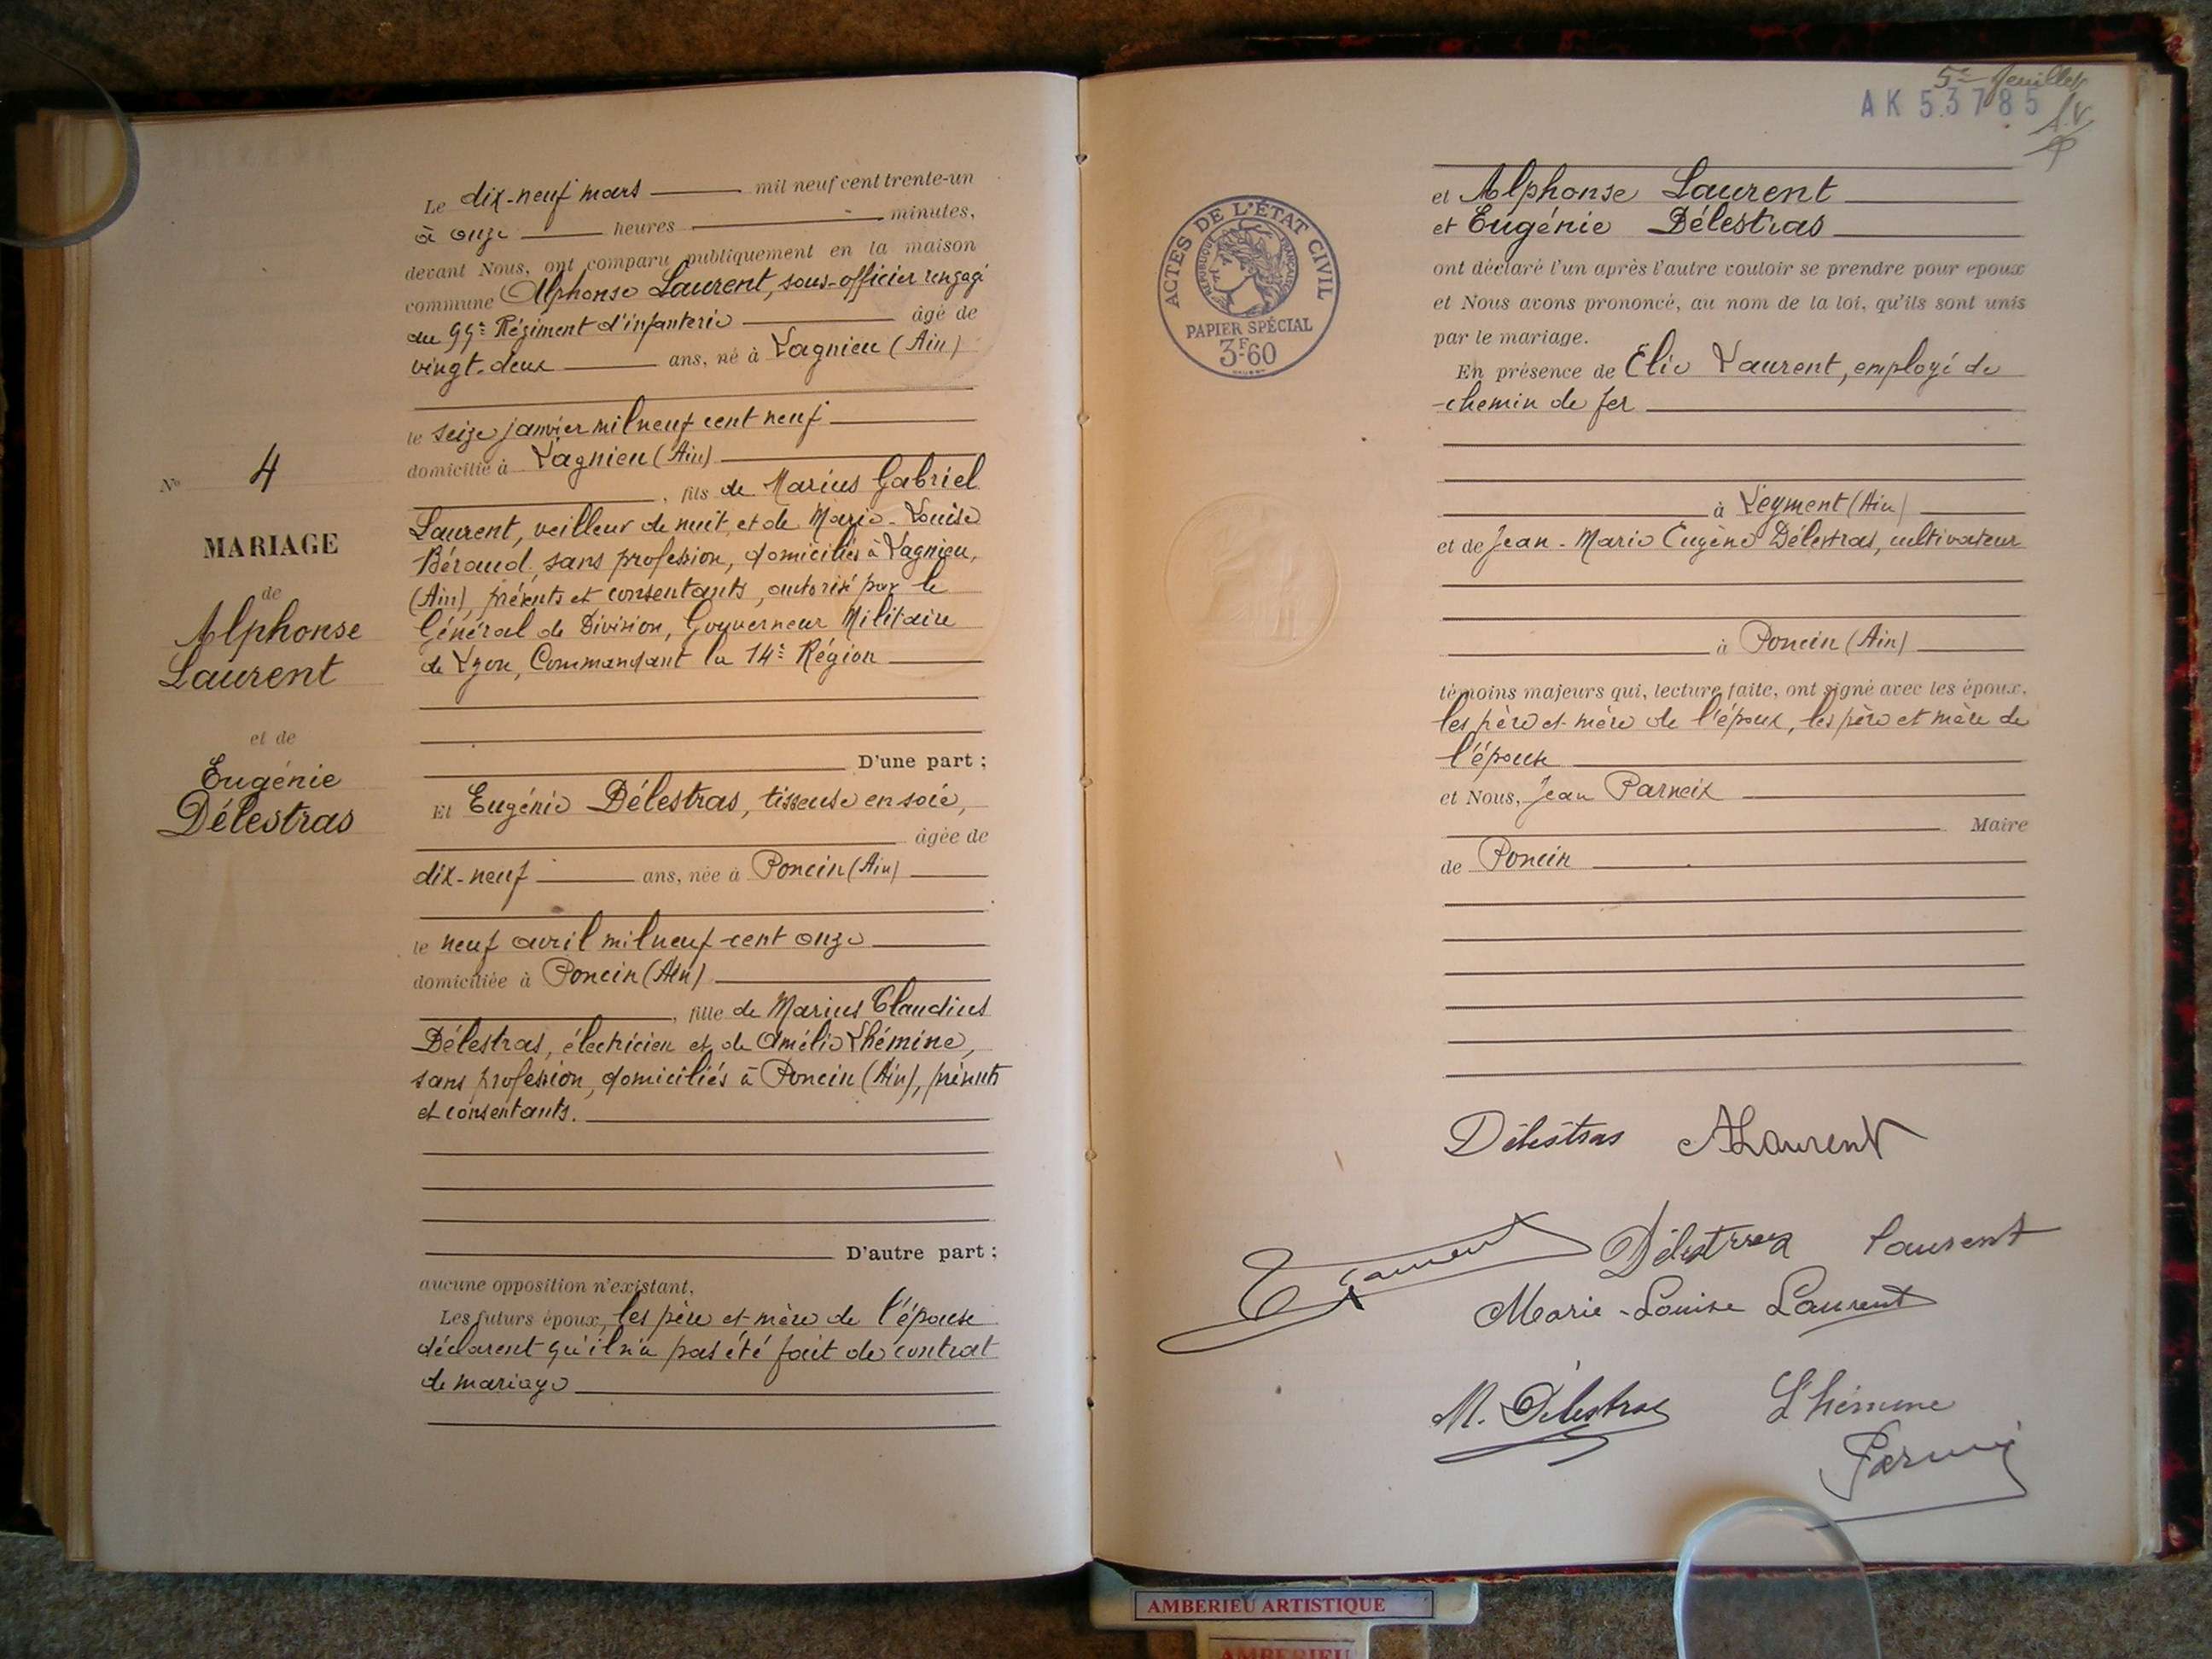 Nº 4
MARIAGE
de
Alphonse
Laurent
et de
Eugénie
Délestras
Le dix-neuf mars mil neuf cent trente-un
à onze heures minutes,
devant Nous, ont comparu publiquement en la maison
commune Alphonse Laurent, sous-officier rengagé
au 99e Régiment d'infanterie âgé de
vingt-deux ans, né à Lagnieu (Ain)
le seize janvier mil neuf cent neuf
domicilié à Lagnieu (Ain)
, fils de Marius Gabriel
Laurent, veilleur de nuit, et de Marie-Louise
Béraud, sans profession, domiciliés à Lagnieu,
(Ain), présents et consentants, autorisé par le
Général de Division, Gouverneur Militaire
de Lyon, Commandant la 14e Région
D'une part ;
Et Eugénie Délestras, tisseuse en soie,
âgée de
dix-neuf ans, née à Poncin (Ain)
le neuf avril mil neuf cent onze
domiciliée à Poncin (Ain)
, fille de Marius Claudius
Délestras, électricien et de Amélie Lhémine,
sans profession, domiciliés à Poncin (Ain), présents
et consentants.
D'autre part ;
aucune opposition n'existant,
Les futurs époux, les père et mère de l'épouse
déclarent qu'il n'a pas été fait de contrat
de mariage
5e feuillet
AK 53785
ACTES DE L'ÉTAT CIVIL
RÉPUBLIQUE FRANÇAISE
PAPIER SPÉCIAL
3F60
et Alphonse Laurent
et Eugénie Délestras
ont déclaré l'un après l'autre vouloir se prendre pour époux
et Nous avons prononcé, au nom de la loi, qu'ils sont unis
par le mariage.
En présence de Élie Laurent, employé de
chemin de fer
à Leyment (Ain)
et de Jean-Marie Eugène Délestras, cultivateur
à Poncin (Ain)
témoins majeurs qui, lecture faite, ont signé avec les époux,
les père et mère de l'époux, les père et mère de
l'épouse
et Nous, Jean Parneix
Maire
de Poncin
Délestras ALaurent
Laurent Délestras Laurent
Marie-Louise Laurent
M. Délestras Lhémine
AMBERIEU ARTISTIQUE
AMBERIEU